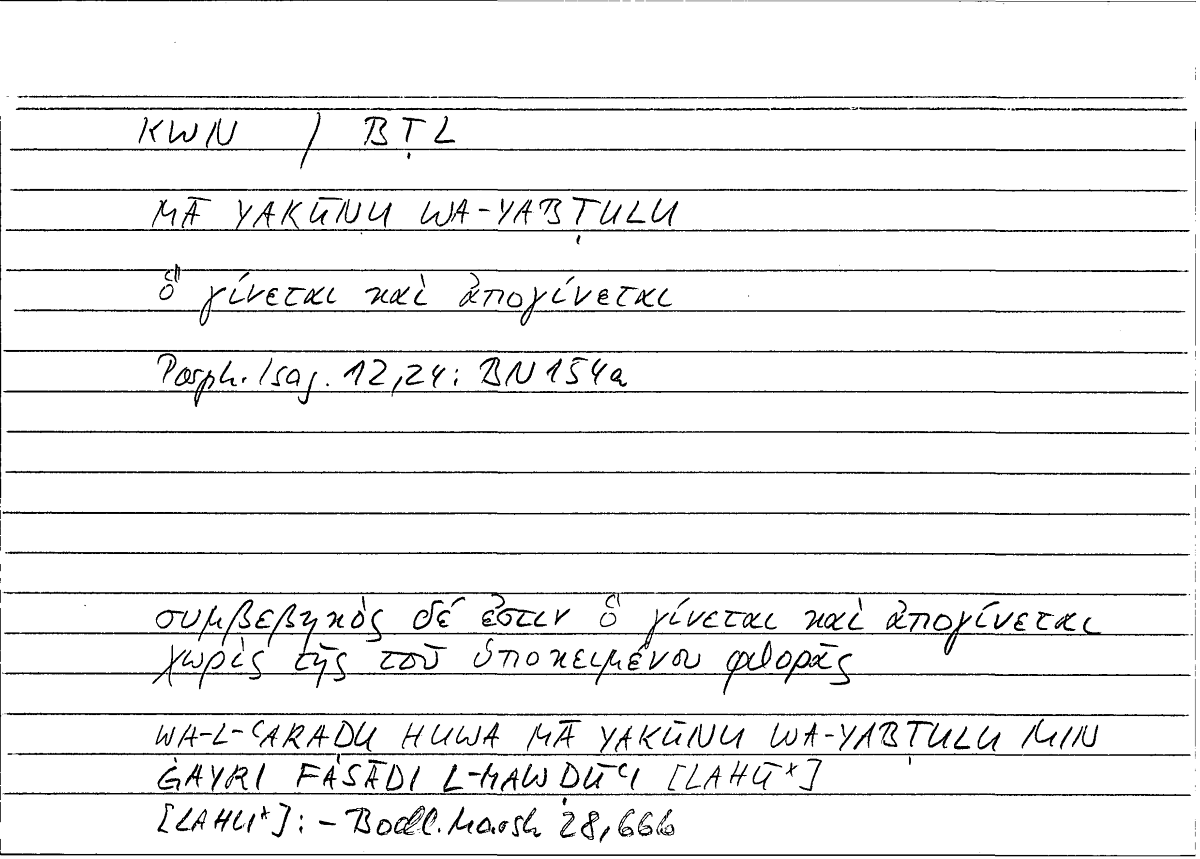 KWN / BṬL
MĀ YAKŪNU WA-YABṬULU
ὃ γίνεται καὶ ἀπογίνεται
Porph. Isag. 12,24: BN 154a
συμβεβηκὸς δέ ἐστιν ὃ γίνεται καὶ ἀπογίνεται
χωρὶς τῆς τοῦ ὑποκειμένου φθορᾶς
WA-L-ʿARAḌU HUWA MĀ YAKŪNU WA-YABṬULU MIN
ĠAYRI FASĀDI L-MAWḌŪʿI [LAHŪ*]
[LAHU*]: – Bodl. Marsh 28,66b